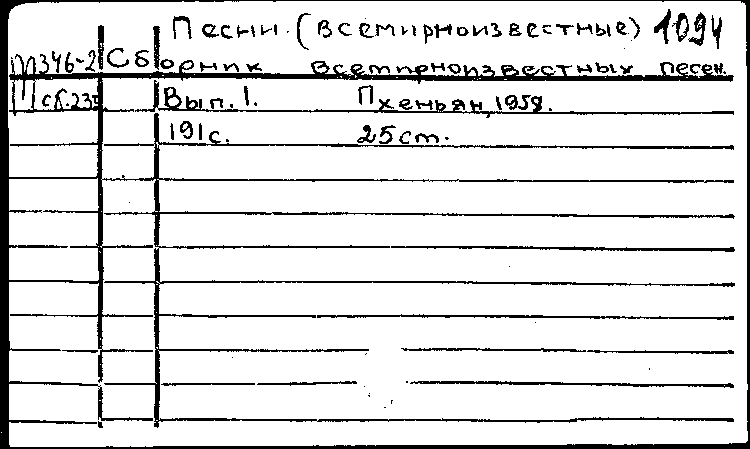 Песни. (всемирноизвестные) 1094
m346-2 Сборник всемирноизвестных песен.
сб.235 Вып. 1. Пхеньян, 1958.
191с. 25 cm.